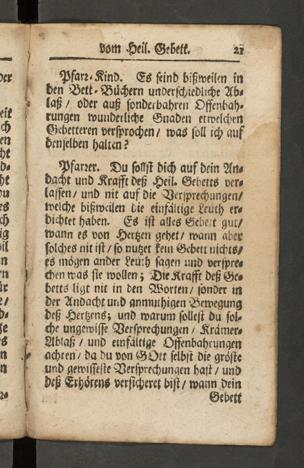 vom Heil. Gebett. 21
Pfarr-Kind. Es seind bißweilen in
den Bett-Büchern underschiedliche Ab-
laß / oder auß sonderbahren Offenbah-
rungen wunderliche Gnaden etwelchen
Gebetteren versprochen / was soll ich auf
denselben halten?
Pfarrer. Du sollst dich auf dein An-
dacht und Krafft deß Heil. Gebetts ver-
lassen / und nit auf die Versprechungen /
welche bißweilen die einfältige Leuth er-
dichtet haben. Es ist alles Gebett gut /
wann es von Hertzen gehet / wann aber
solches nit ist / so nutzet kein Gebett nichts /
es mögen ander Leuth sagen und verspre-
chen was sie wollen; Die Krafft deß Ge-
betts ligt nit in den Worten / sonder in
der Andacht und anmuthigen Bewegung
deß Hertzens; und warum sollest du sol-
che ungewisse Versprechungen / Krämer-
Ablaß / und einfältige Offenbahrungen
achten / da du von GOtt selbst die gröste
und gewisseste Versprechungen hast / und
deß Erhörens versicheret bist / wann dein
Gebett